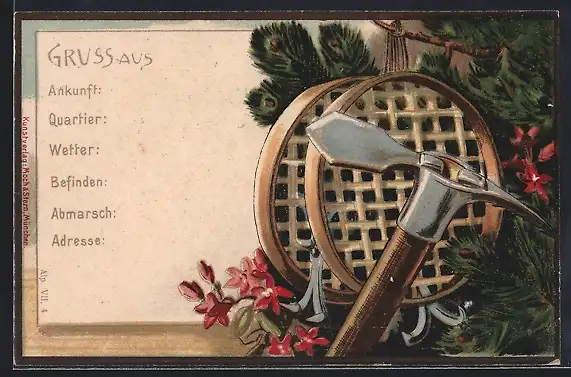 GRUSS AUS
Ankunft:
Quartier:
Wetter:
Befinden:
Abmarsch:
Adresse:
Kunstverlag Moch & Stern, München.
Alp. VII. 4